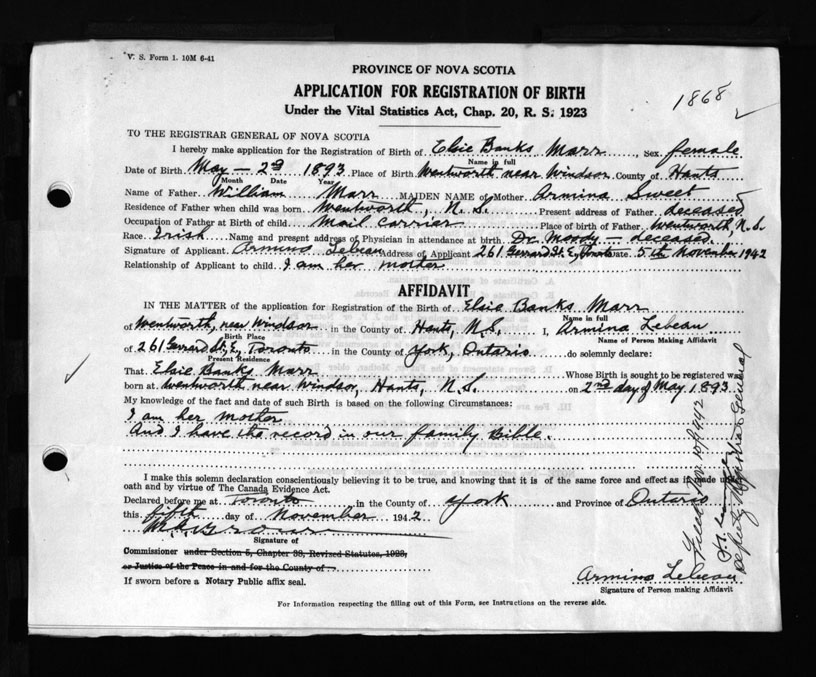 V. S. Form 1. 10M 6-41
PROVINCE OF NOVA SCOTIA
APPLICATION FOR REGISTRATION OF BIRTH
Under the Vital Statistics Act, Chap. 20, R. S. 1923
1868
TO THE REGISTRAR GENERAL OF NOVA SCOTIA
I hereby make application for the Registration of Birth of Elsie Banks Marr, Sex female
Name in full
Date of Birth May - 2nd 1893 Place of Birth Wentworth near Windsor County of Hants
Month Date Year
Name of Father William Marr MAIDEN NAME of Mother Armina Sweet
Residence of Father when child was born Wentworth, N. S. Present address of Father deceased
Occupation of Father at Birth of child Mail Carrier Place of birth of Father Wentworth, N. S.
Race Irish Name and present address of Physician in attendance at birth Dr. Moody - deceased.
Signature of Applicant Armina Lebeau Address of Applicant 261 Gerrard St. E, Toronto Date 5th November 1942
Relationship of Applicant to child I am her mother
AFFIDAVIT
IN THE MATTER of the application for Registration of the Birth of Elsie Banks Marr
Name in full
of Wentworth, near Windsor in the County of Hants, N.S. I, Armina Lebeau
Birth Place Name of Person Making Affidavit
of 261 Gerrard St. E, Toronto in the County of York, Ontario do solemnly declare:
Present Residence
That Elsie Banks Marr Whose Birth is sought to be registered was
born at Wentworth near Windsor, Hants, N. S. on 2nd day of May 1893
My knowledge of the fact and date of such Birth is based on the following Circumstances:
I am her mother
And I have the record in our family Bible.
I make this solemn declaration conscientiously believing it to be true, and knowing that it is of the same force and effect as if made under
oath and by virtue of The Canada Evidence Act.
Declared before me at Toronto in the County of York and Province of Ontario
this fifth day of November 1942
Signature of
Commissioner under Section 5, Chapter 38, Revised Statutes, 1923,
or Justice of the Peace in and for the County of
If sworn before a Notary Public affix seal.
Armina Lebeau
Signature of Person making Affidavit
For Information respecting the filling out of this Form, see Instructions on the reverse side.
Filed Nov. 10/1942
Deputy Registrar General